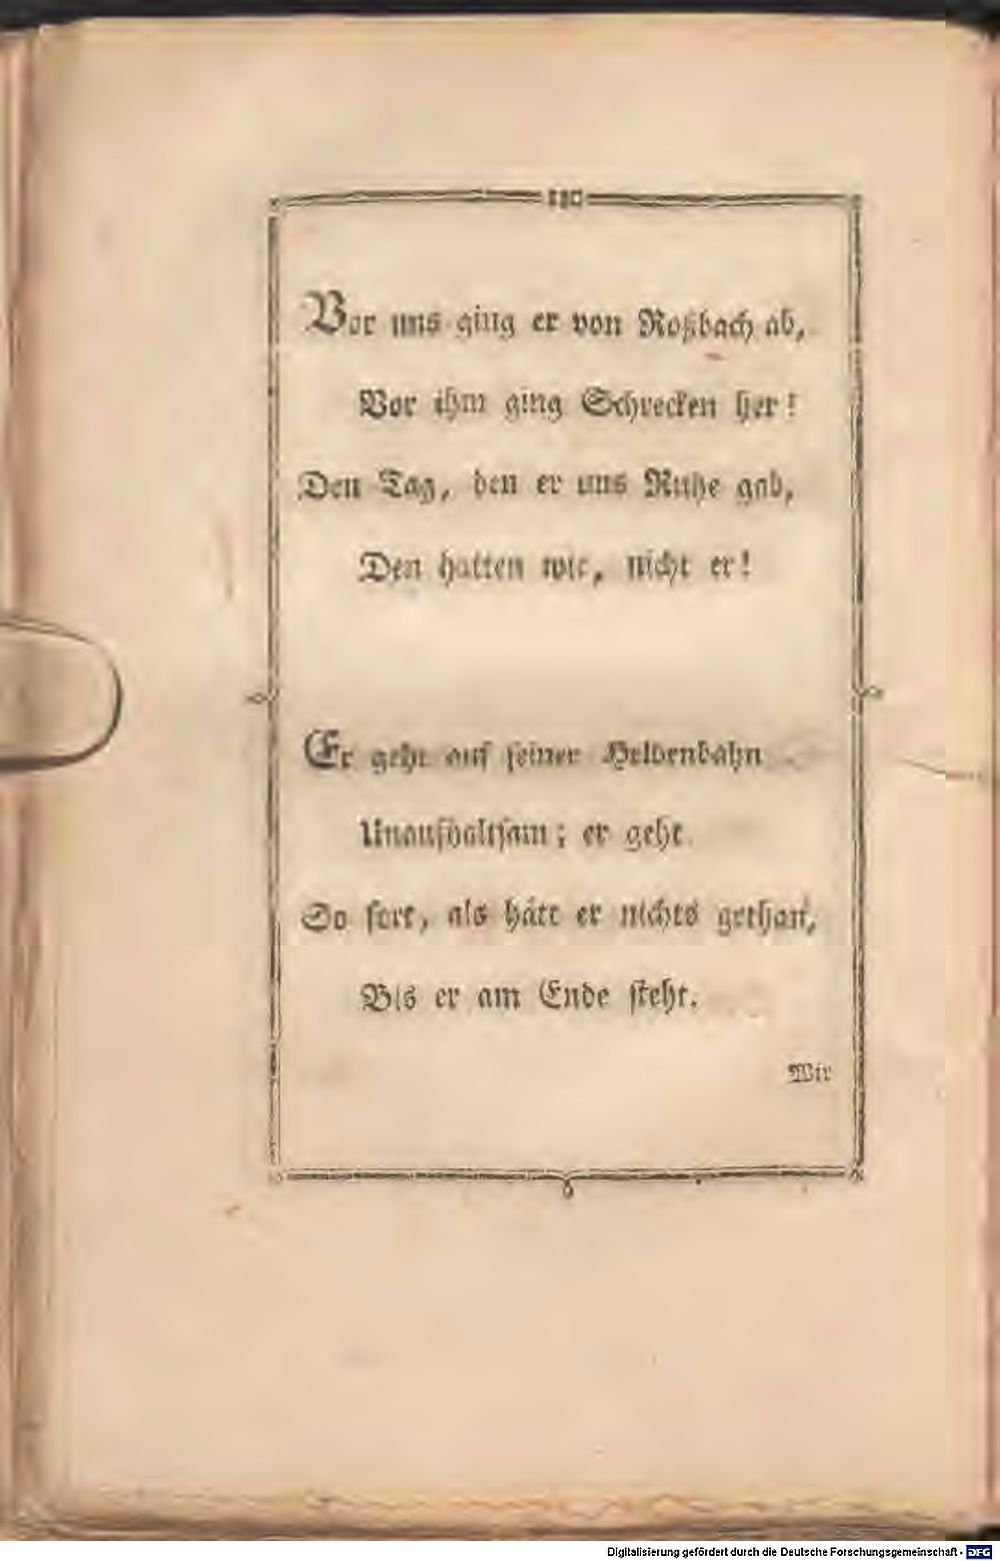 Vor uns ging er von Roßbach ab,
Vor ihm ging Schrecken her!
Den Tag, den er uns Ruhe gab,
Den hatten wir, nicht er!
Er geht auf seiner Heldenbahn
Unaufhaltsam; er geht
So fort, als hätt er nichts gethan,
Bis er am Ende steht.
Wir
Digitalisierung gefördert durch die Deutsche Forschungsgemeinschaft - DFG